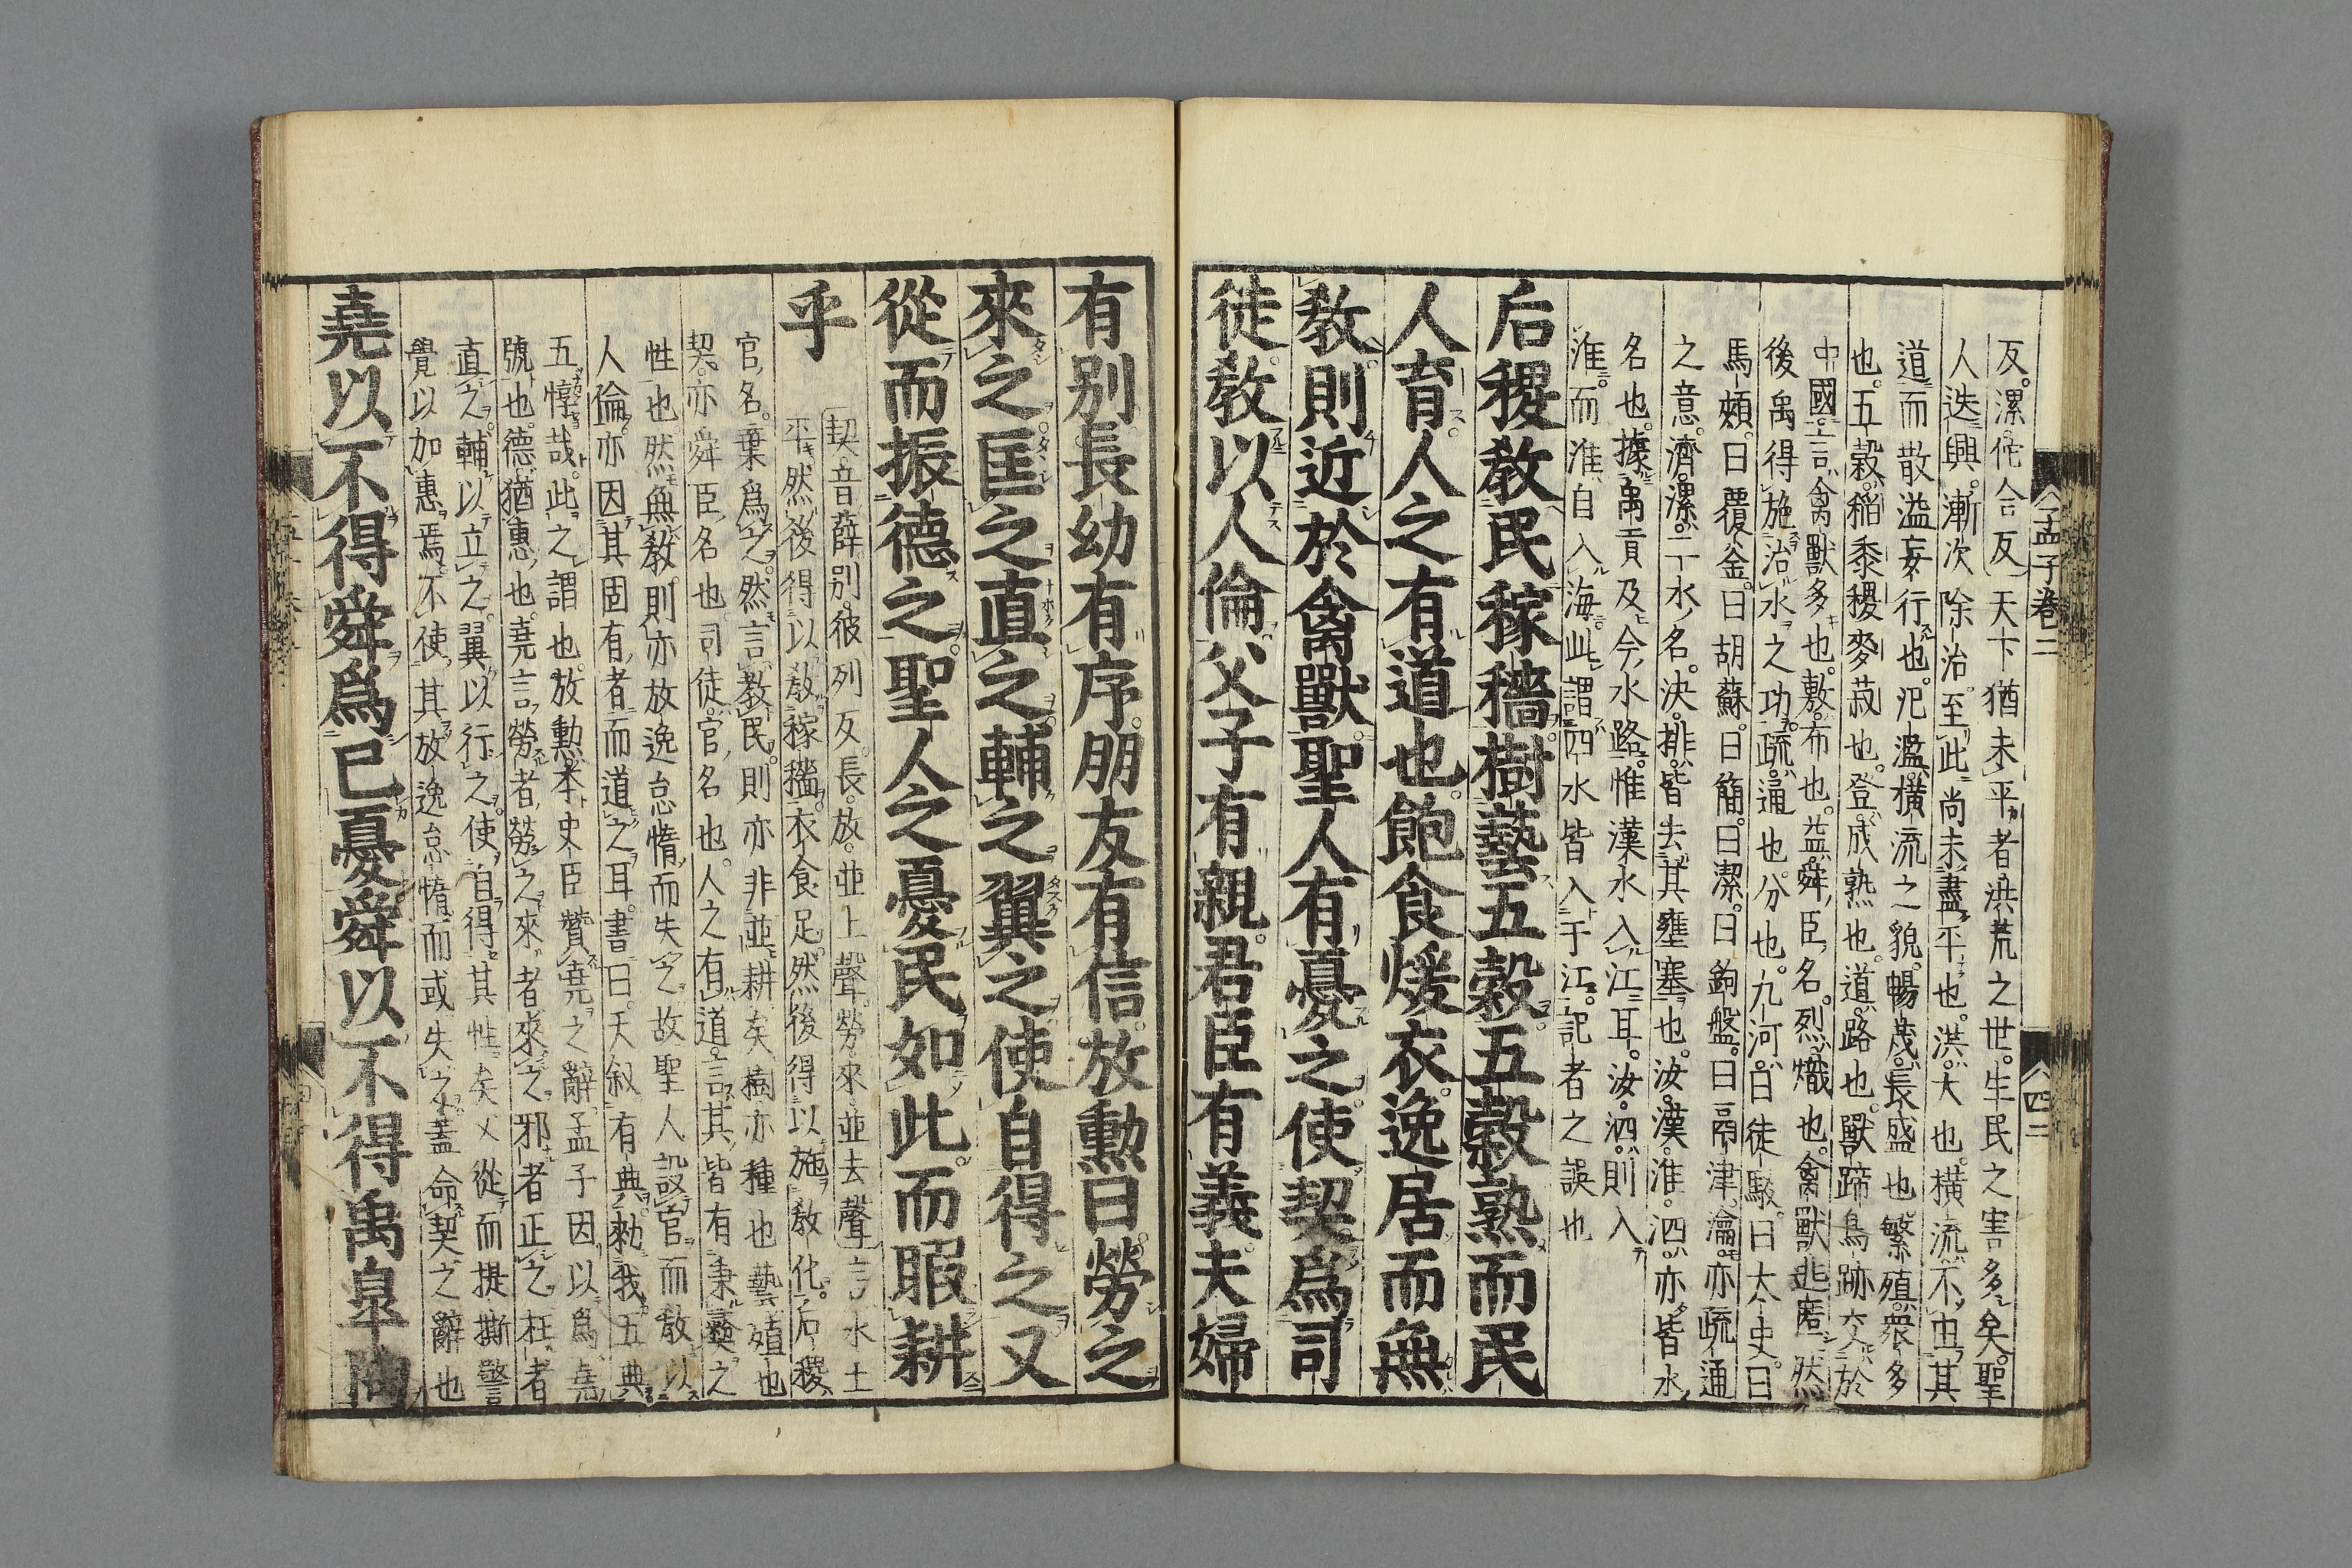 孟子卷二
四二
反漯佗合反天下猶未平者洪荒之世生民之害多矣聖
人迭興漸次除治至此尚未盡平也洪大也橫流不由其
道而散溢妄行也氾濫橫流之貌暢茂長盛也繁殖衆多
也五穀稻黍稷麥菽也登成熟也道路也獸蹄鳥跡交於
中國言禽獸多也敷布也益舜臣名烈熾也禽獸逃匿然
後禹得施治水之功疏通也分也九河曰徒駭曰太史曰
馬頰曰覆釜曰胡蘇曰簡曰潔曰鉤盤曰鬲津瀹亦疏通
之意濟漯二水名決排皆去其壅塞也汝漢淮泗亦皆水
名也據禹貢及今水路惟漢水入江耳汝泗則入
淮而淮自入海此謂四水皆入于江記者之誤也
后稷敎民稼穡樹藝五穀五穀熟而民
人育人之有道也飽食煖衣逸居而無
敎則近於禽獸聖人有憂之使契爲司
徒敎以人倫父子有親君臣有義夫婦
有別長幼有序朋友有信放勳曰勞之
來之匡之直之輔之翼之使自得之又
從而振德之聖人之憂民如此而暇耕
乎
契音薛別彼列反長放並上聲勞來並去聲言水土
平然後得以敎稼穡衣食足然後得以施敎化后稷
官名棄爲之然言敎民則亦非並耕矣樹亦種也藝殖也
契亦舜臣名也司徒官名也人之有道言其皆有秉彝之
性也然無敎則亦放逸怠惰而失之故聖人設官而敎以
人倫亦因其固有者而道之耳書曰天叙有典勑我五典
五惇哉此之謂也放勳本史臣贊堯之辭孟子因以爲堯
號也德猶惠也堯言勞者勞之來者來之邪者正之枉者
直之輔以立之翼以行之使自得其性矣又從而提撕警
覺以加惠焉不使其放逸怠惰而或失之蓋命契之辭也
堯以不得舜爲己憂舜以不得禹皐陶